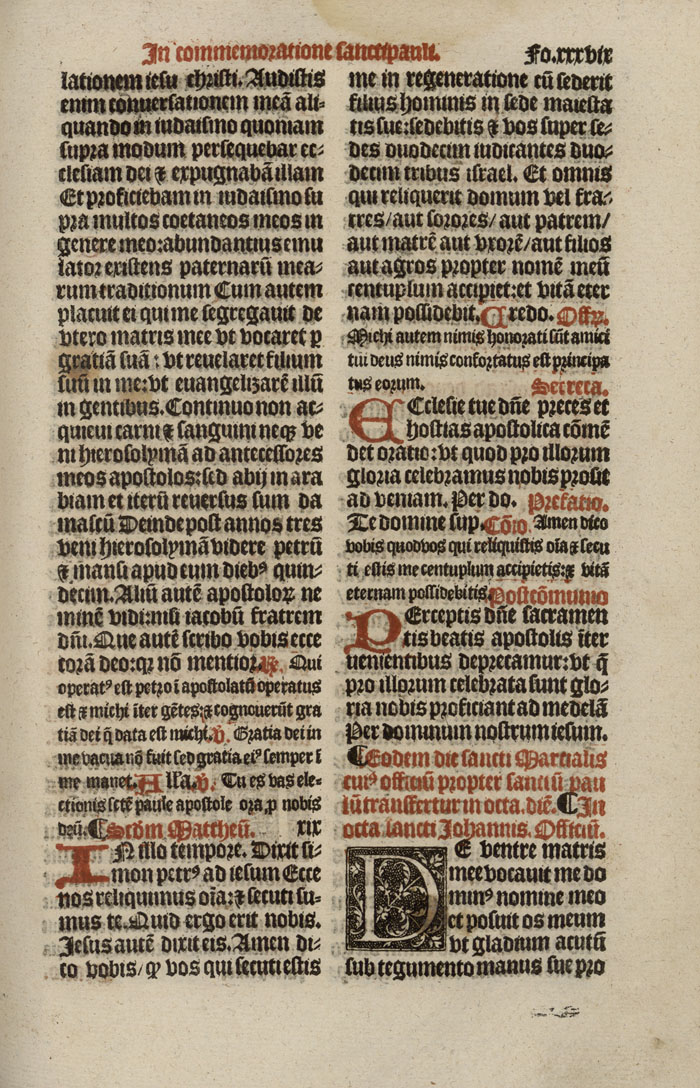 In commemoratione sancti pauli. Fo.xxxvix
lationem iesu christi. Audistis
enim conversationem meã ali-
quando in iudaismo quoniam
supra modum persequebar ec-
clesiam dei ⁊ expugnabã illam
Et proficiebam in iudaismo su
pra multos coetaneos meos in
genere meo: abundantius emu
lator existens paternarũ mea-
rum traditionum Cum autem
placuit ei qui me segregauit de
vtero matris mee vt vocaret ꝑ
gratiã suã: vt reuelaret filium
suũ in me: vt euangelizarẽ illũ
in gentibus. Continuo non ac-
quieui carni ⁊ sanguini neqꝫ ve
ni hierosolymã ad antecessores
meos apostolos: sed abij in ara
biam et iterũ reuersus sum da
mascũ Deinde post annos tres
veni hierosolymã videre petrũ
⁊ mansi apud eum diebꝰ quin-
decim. Aliũ autẽ apostoloꝝ ne
minẽ vidi: nisi iacobũ fratrem
dñi. Que autẽ scribo vobis ecce
corã deo: qꝛ nõ mentior. ℟. Qui
operatꝰ est petro ĩ apostolatũ operatus
est ⁊ michi ĩter gẽtes: ⁊ cognouerũt gra
tiã dei q̃ data est michi. ℣. Gratia dei in
me vacua nõ fuit sed gratia eiꝰ semper ĩ
me manet. Alla. ℣. Tu es vas ele-
ctionis sctẽ paule apostole ora ꝓ nobis
deũ. ¶ Scďm Mattheũ. xix
IN illo tempore. Dixit si-
mon petrꝰ ad iesum Ecce
nos reliquimus oĩa: ⁊ secuti su-
mus te. Quid ergo erit nobis.
Jesus autẽ dixit eis. Amen di-
co vobis / ꝙ vos qui secuti estis
me in regeneratione cũ sederit
filius hominis in sede maiesta
tis sue: sedebitis ⁊ vos super se-
des duodecim iudicantes duo-
decim tribus israel. Et omnis
qui reliquerit domum vel fra-
tres / aut sorores / aut patrem /
aut matrẽ aut vxorẽ / aut filios
aut agros propter nomẽ meũ
centuplum accipiet: et vitã eter
nam possidebit. Credo. Offr.
Michi autem nimis honorati sũt amici
tui deus nimis confortatus est principa
tus eorum. Secreta.
ECclesie tue dñe preces et
hostias apostolica cõmẽ
det oratio: vt quod pro illorum
gloria celebramus nobis prosit
ad veniam. Per do. Prefatio.
Te domine sup. Cõio. Amen dico
vobis quod vos qui reliquistis oĩa ⁊ secu
ti estis me centuplum accipietis: ⁊ vitã
eternam possidebitis. Postcõmunio
PErceptis dñe sacramen
tis beatis apostolis ĩter
uenientibus deprecamur: vt q̃
pro illorum celebrata sunt glo-
ria nobis proficiant ad medelã
Per dominum nostrum iesum.
¶ Eodem die sancti Martialis
cuiꝰ officiũ propter sanctũ pau
lũ transfertur in octa. diẽ. ¶ In
octa sancti Johannis. Officiũ.
DE ventre matris
mee vocauit me do
minꝰ nomine meo
et posuit os meum
vt gladium acutũ
sub tegumento manus sue pro